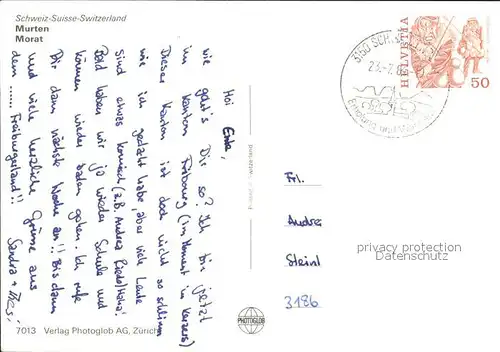 Schweiz-Suisse-Switzerland
Murten
Morat
Hoi
wie geht's Dir so? Ich bin jetzt
im Kanton Fribourg (im Moment in Kerzers)
Dieser Kanton ist doch nicht so schlimm
wie ich gedacht habe, aber viel Leute
sind etwas komisch (z.B. Andrea Riedo/Haha!
Bald haben wir ja wieder Schule und
können wieder baden gehen. Ich rufe
Dir dann nächste Woche an!! Bis dann
und viele herzliche Grüsse aus
dem ...... Freiburgerland!! Sandra +
HELVETIA
50
3150 SCH
Erholung und
Switzerland
Frl.
Andrea
Steinl
3186
privacy protection
Datenschutz
7013 Verlag Photoglob AG, Zürich
PHOTOGLOB